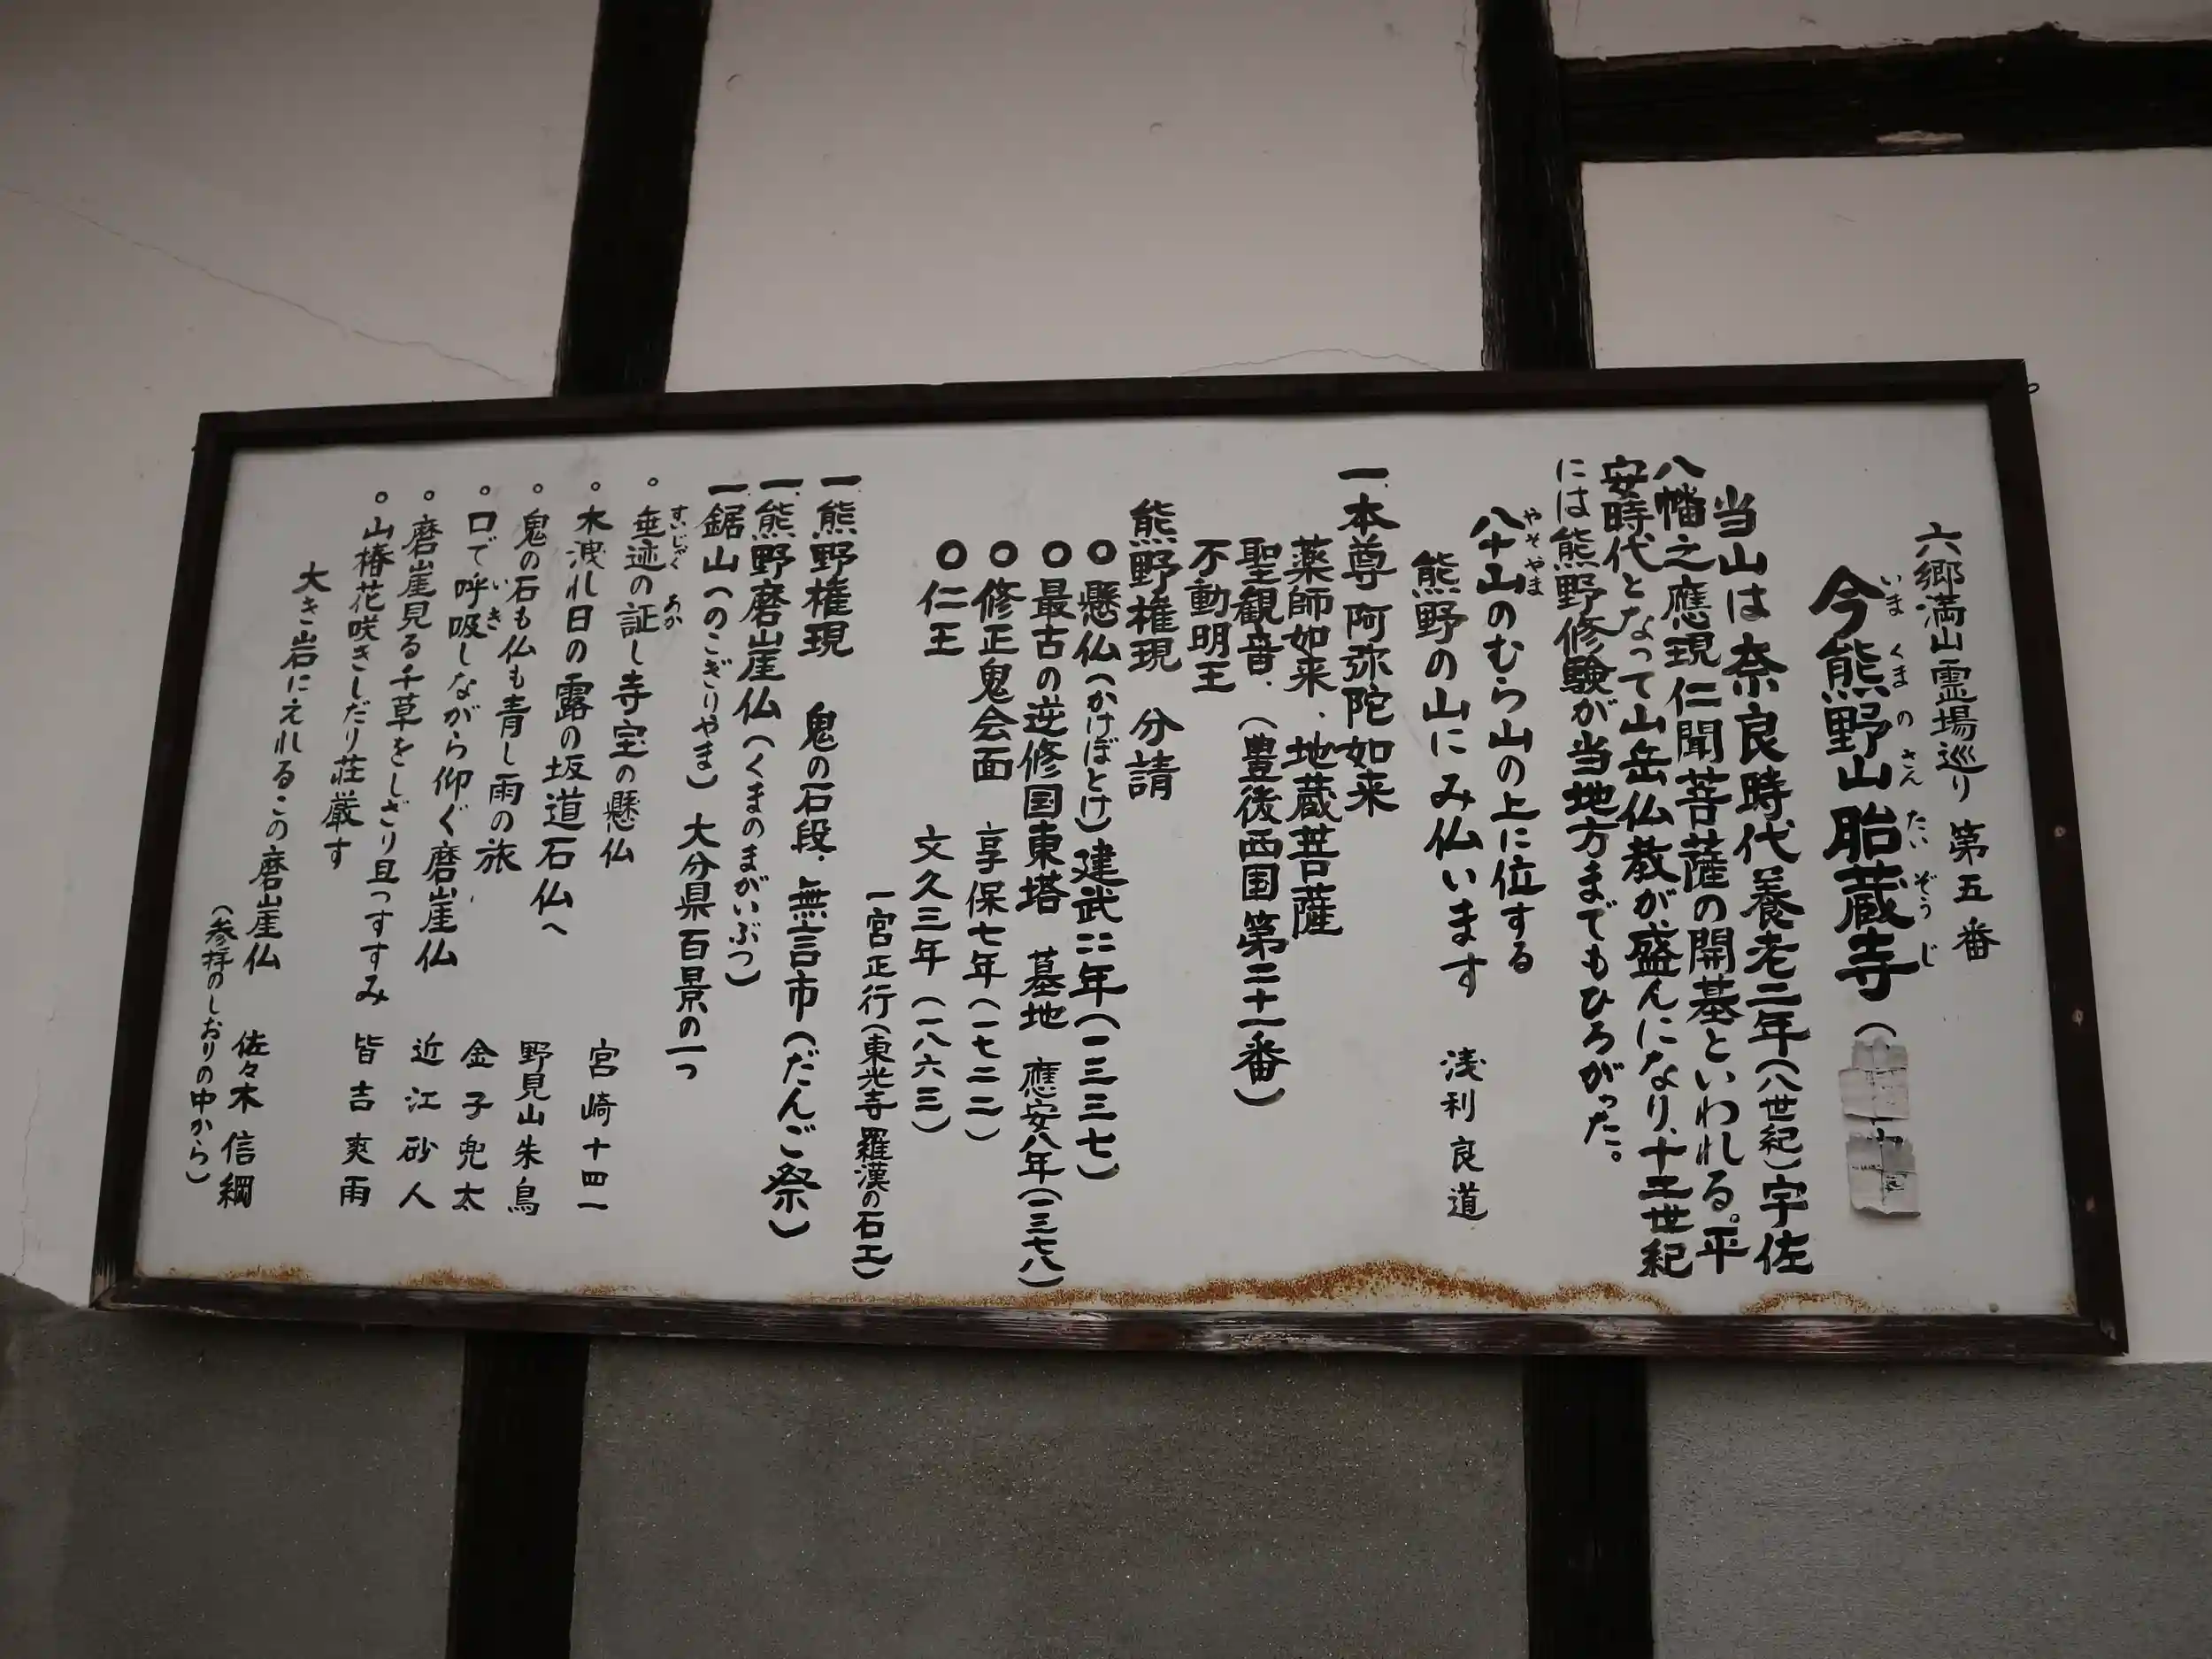 六郷満山霊場巡り 第五番
今熊野山胎蔵寺（
いま くまの さん たい ぞう じ
当山は奈良時代養老二年（八世紀）宇佐
八幡之應現仁聞菩薩の開基といわれる。平
安時代となって山岳仏教が盛んになり、十二世紀
には熊野修験が当地方までもひろがった。
やそやま
八十山のむら山の上に位する
熊野の山にみ仏います 浅利良道
一、本尊 阿弥陀如来
薬師如来、地蔵菩薩
聖観音、（豊後西国第二十一番）
不動明王
熊野権現 分請
○懸仏（かけぼとけ）建武二二年（一三三七）
○最古の逆修国東塔 墓地 應安八年（一三七八）
○修正鬼会面 享保七年（一七二二）
○仁王 文久三年（一八六三）
一宮正行（東光寺羅漢の石工）
一、熊野権現 鬼の石段、無言市（だんご祭）
一、熊野磨崖仏（くまのまがいぶつ）
一、鋸山（のこぎりやま）大分県百景の一つ
すいじゃく あか
○垂迹の証し寺宝の懸仏
○木洩れ日の露の坂道石仏へ 宮崎十四一
○鬼の石も仏も青し雨の旅 野見山朱鳥
いき
○口で呼吸しながら仰ぐ磨崖仏 金子兜太
○磨崖見る千草をしざり且つすすみ 近江砂人
○山椿花咲きしだり荘厳す 皆吉爽雨
大き岩にえれるこの磨崖仏 佐々木信綱
（参拝のしおりの中から）